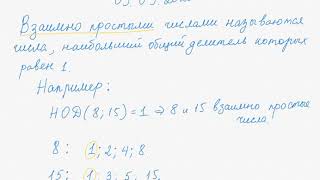 Взаимно простыми числами называются
числа, наибольший общий делитель которых
равен 1.
Например:
НОД(8; 15) = 1 ⇒ 8 и 15 взаимно простые
числа.
8 : 1; 2; 4; 8
15: 1; 3; 5; 15.